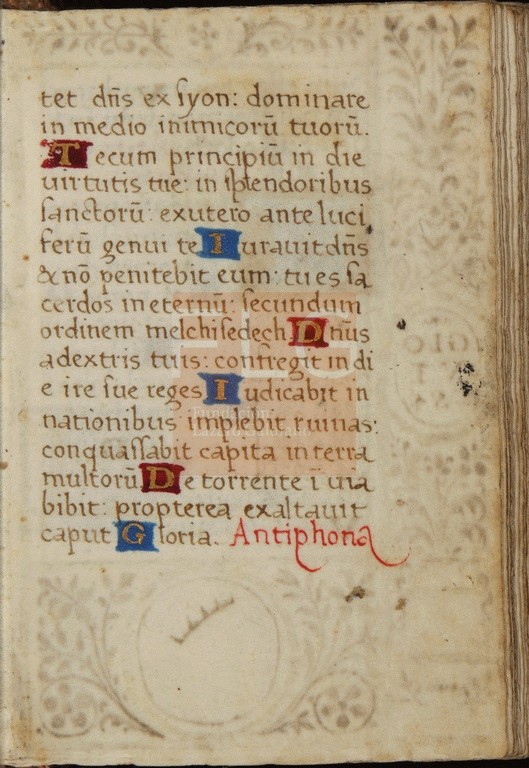 tet dn̄s ex syon: dominare
in medio inimicorū tuorū.
Tecum principiū in die
uirtutis tue: in splendoribus
sanctorū: exutero ante luci
ferū genui te Iurauit dn̄s
& nō penitebit eum: tu es sa
cerdos in eternū: secundum
ordinem melchisedech Dn̄us
adextris tuis: confregit in di
e ire sue reges Iudicabit in
nationibus implebit ruinas:
conquassabit capita in terra
multorū De torrente ī uia
bibit: propterea exaltauit
caput Gloria. Antiphona